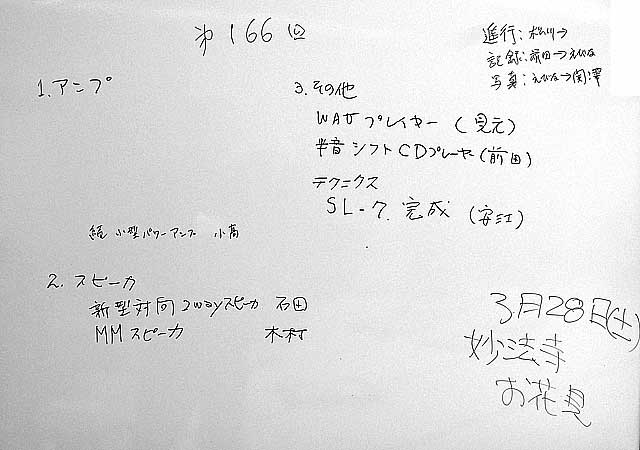 第166回
進行: 松川→
記録: 前田→えびな
写真: えびな→関澤
1. アンプ
続 小型パワーアンプ 小高
2. スピーカ
新型対向2wayスピーカ 石田
MMスピーカ 木村
3. その他
WAVプレイヤー (見元)
半音シフトCDプレーヤ(前田)
テクニクス
SL-7. 完成 (安江)
3月28日(土)
妙法寺
お花見